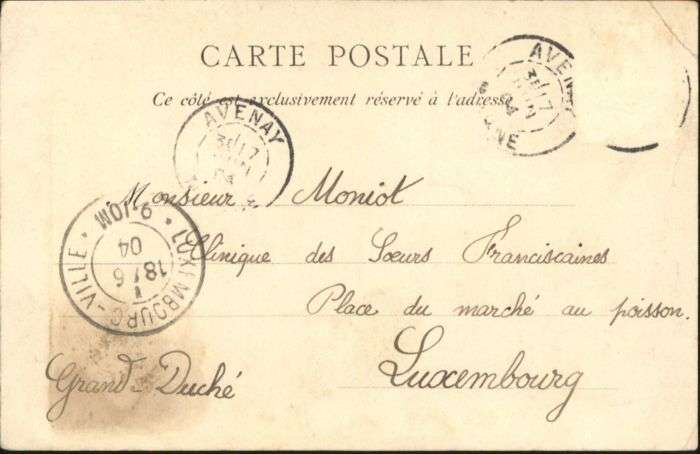 CARTE POSTALE
Ce côté est exclusivement réservé à l'adresse
AVENAY
17
JUIN
04
AVENAY
17
JUIN
04
MARNE
Monsieur Moniot
Clinique des Sœurs Franciscaines
Place du marché au poisson.
Luxembourg
Grand-Duché
LUXEMBOURG-VILLE
9-10M
18/6
04